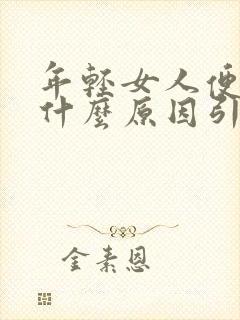 年輕女人便
什麼原因引
金素恩